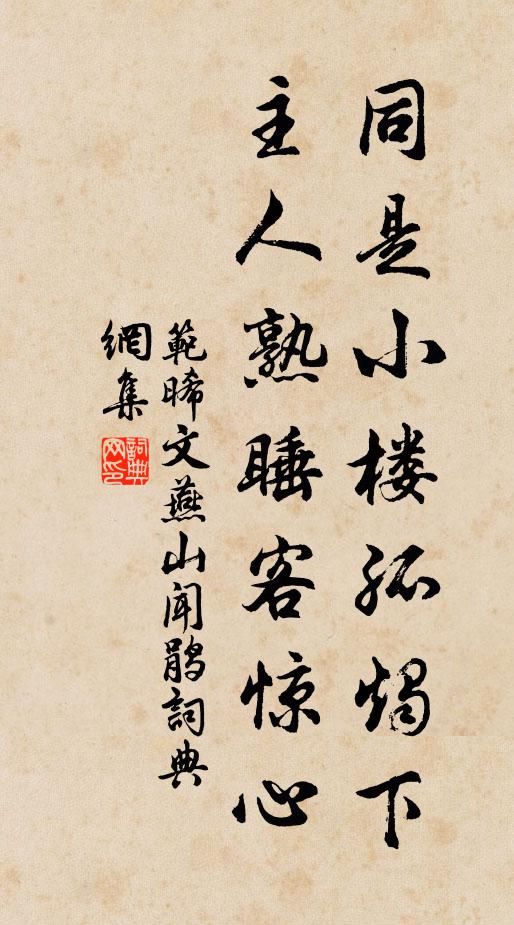 同是小楼孤烛下
主人熟睡客惊心
範晞文燕山闻鹃詞典
網集
詞典
网印